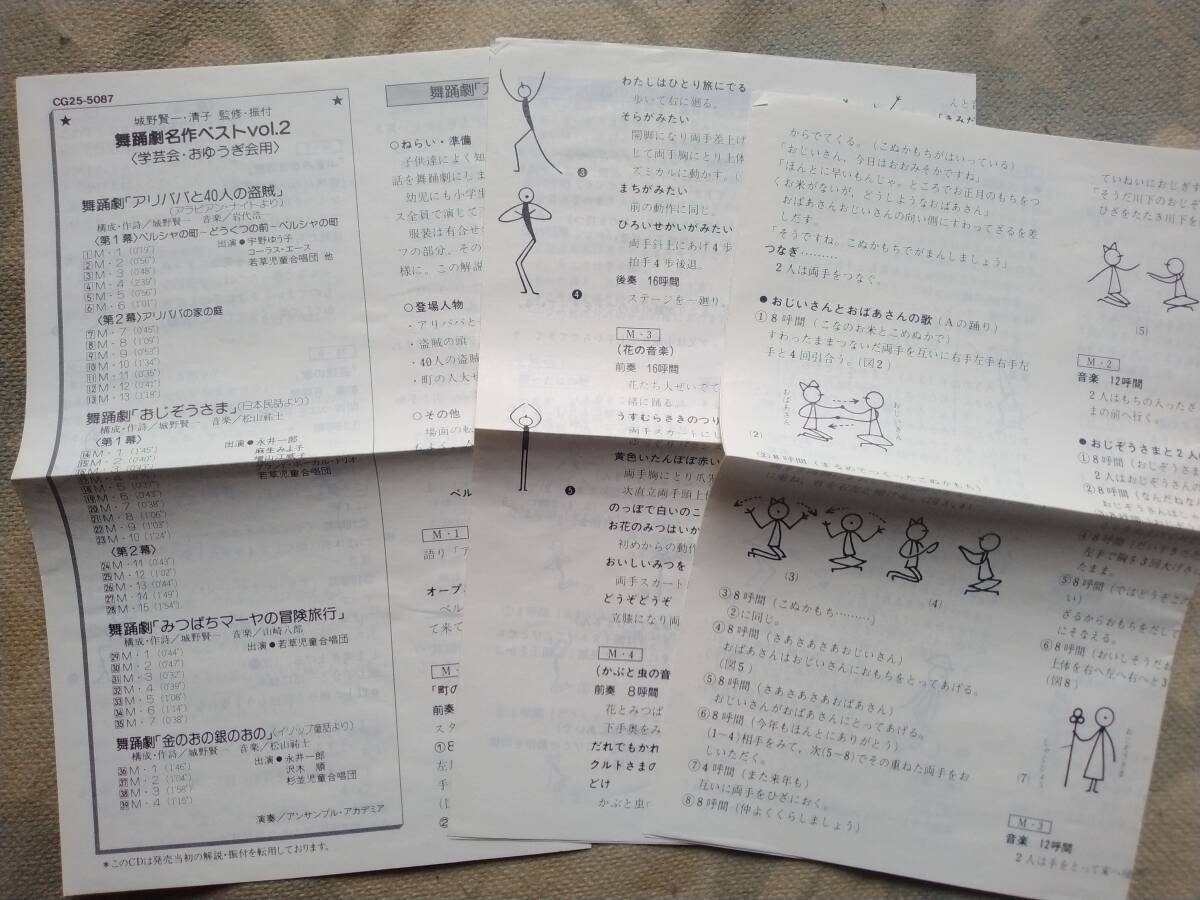 CG25-5087
城野賢一・清子 監修・振付
舞踊劇名作ベストvol.2
〈学芸会・おゆうぎ会用〉
舞踊劇「アリババと40人の盗賊」
(アラビアン・ナイトより)
構成・作詩/城野賢一 音楽/岩代浩一
〈第1幕〉ペルシャの町~どうくつの前~ペルシャの町
出演●宇野ゆう子
コーラス・エース
若草児童合唱団 他
1 M・1 (0'19")
2 M・2 (0'56")
3 M・3 (0'48")
4 M・4 (2'39")
5 M・5 (0'56")
6 M・6 (1'01")
〈第2幕〉アリババの家の庭
7 M・7 (0'45")
8 M・8 (1'09")
9 M・9 (0'53")
10 M・10 (1'34")
11 M・11 (0'35")
12 M・12 (0'41")
13 M・13 (1'18")
舞踊劇「おじぞうさま」(日本民話より)
構成・作詩/城野賢一 音楽/松山祐士
〈第1幕〉
出演●永井一郎
麻生みよ子
若草児童合唱団
14 M・1 (1'45")
18 M・5
19 M・6 (0'43")
20 M・7 (0'38")
21 M・8 (1'06")
22 M・9 (1'03")
23 M・10 (1'24")
〈第2幕〉
24 M・11 (0'43")
25 M・12 (1'02")
26 M・13 (0'44")
27 M・14 (1'49")
28 M・15 (1'54")
舞踊劇「みつばちマーヤの冒険旅行」
構成・作詩/城野賢一 音楽/山崎八郎
出演●若草児童合唱団
29 M・1 (0'44")
30 M・2 (0'47")
31 M・3 (0'32")
32 M・4 (0'39")
33 M・5 (1'08")
34 M・6 (1'14")
35 M・7 (0'38")
舞踊劇「金のおの銀のおの」(イソップ童話より)
構成・作詩/城野賢一 音楽/松山祐士
出演●永井一郎
沢木 順
杉並児童合唱団
36 M・1 (1'46")
37 M・2 (1'04")
38 M・3 (1'58")
39 M・4 (1'15")
演奏/アンサンブル・アカデミア
*このCDは発売当初の解説・振付を転用しております。
舞踊劇「ア
○ねらい・準備
子供達によく知
話を舞踊劇にしま
幼児にも小学生
ス全員で演じて
服装は有合せ
フの部分。その
様に。この解説
○登場人物
・アリババと
・盗賊の頭
・40人の盗賊
・町の人大ぜ
○その他
場面の転
ペル
M・1
語り「ア
オープ
ペル
て来て
M・
「町の
前奏
スタ
①8
左
手
②
わたしはひとり旅にでる
歩いて右に廻る。
そらがみたい
開脚になり両手差上げ
じて両手胸にとり上体
ズミカルに動かす。
まちがみたい
前の動作に同じ。
ひろいせかいがみたい
両手斜上にあげ4歩
拍手4歩後退。
後奏 16呼間
ステージを一廻り。
M・3
(花の音楽)
前奏 16呼間
花たち大ぜいでて
緒に踊る。
うすむらさきのつり
両手スカートに
黄色いたんぽぽ赤い
両手胸にとり爪先
次直立両手頭上
のっぽで白いこの
お花のみつはいか
初めからの動作
おいしいみつを
両手スカート
どうぞどうぞ
立膝になり両
M・4
(かぶと虫の音
前奏 8呼間
花とみつば
下手奥をみ
だれでもかれ
クルトさまの
どけ
かぶと虫
③
④
⑤
からでてくる。(こぬかもちがはいっている)
「おじいさん、今日はおおみそかですね」
「ほんとに早いもんじゃ。ところでお正月のもちをつ
くお米がないが、どうしようなおばあさん」
おばあさんおじいさんの向い側にすわってざるを差
しだす。
「そうですね。こぬかもちでがまんしましょう」
つなぎ………
2人は両手をつなぐ。
●おじいさんとおばあさんの歌(Aの踊り)
①8呼間(こなのお米とこめぬかで)
すわったままつないだ両手を互いに右手左手右手左
手と4回引合う。(図2)
おばあさん
おじいさん
(2)
②8呼間(まるめてつくったこぬかもち)
(3)
(4)
③8呼間(こぬかもち………)
②に同じ。
④8呼間(さあさあさあおじいさん)
おばあさんはおじいさんにおもちをとってあげる。
(図5)
⑤8呼間(さあさあさあおばあさん)
おじいさんがおばあさんにとってあげる。
⑥8呼間(今年もほんとにありがとう)
(1~4)相手をみて、次(5~8)でその重ねた両手をお
しいただく。
⑦4呼間(また来年も)
互いに両手をひざにおく。
⑧8呼間(仲よくくらしましょう)
ていねいにおじぎ
「そうだ川下のおじぞ
ひざをたたき川下を
(5)
M・2
音楽 12呼間
2人はもちの入ったざ
まの前へ行く。
●おじぞうさまと2人
①8呼間(おじぞうさ
2人はおじぞうさん
②8呼間(なんだねな
おじぞうさんは
左手で胸を3回大げさ
たまま。
⑤8呼間(ではどうぞこ
い)
ざるからおもちをだして
にそなえる。
⑥8呼間(おいしそうだお
上体を右へ左へ右へと3
(図8)
(7)
M・3
音楽 12呼間
2人は手をとって家へ